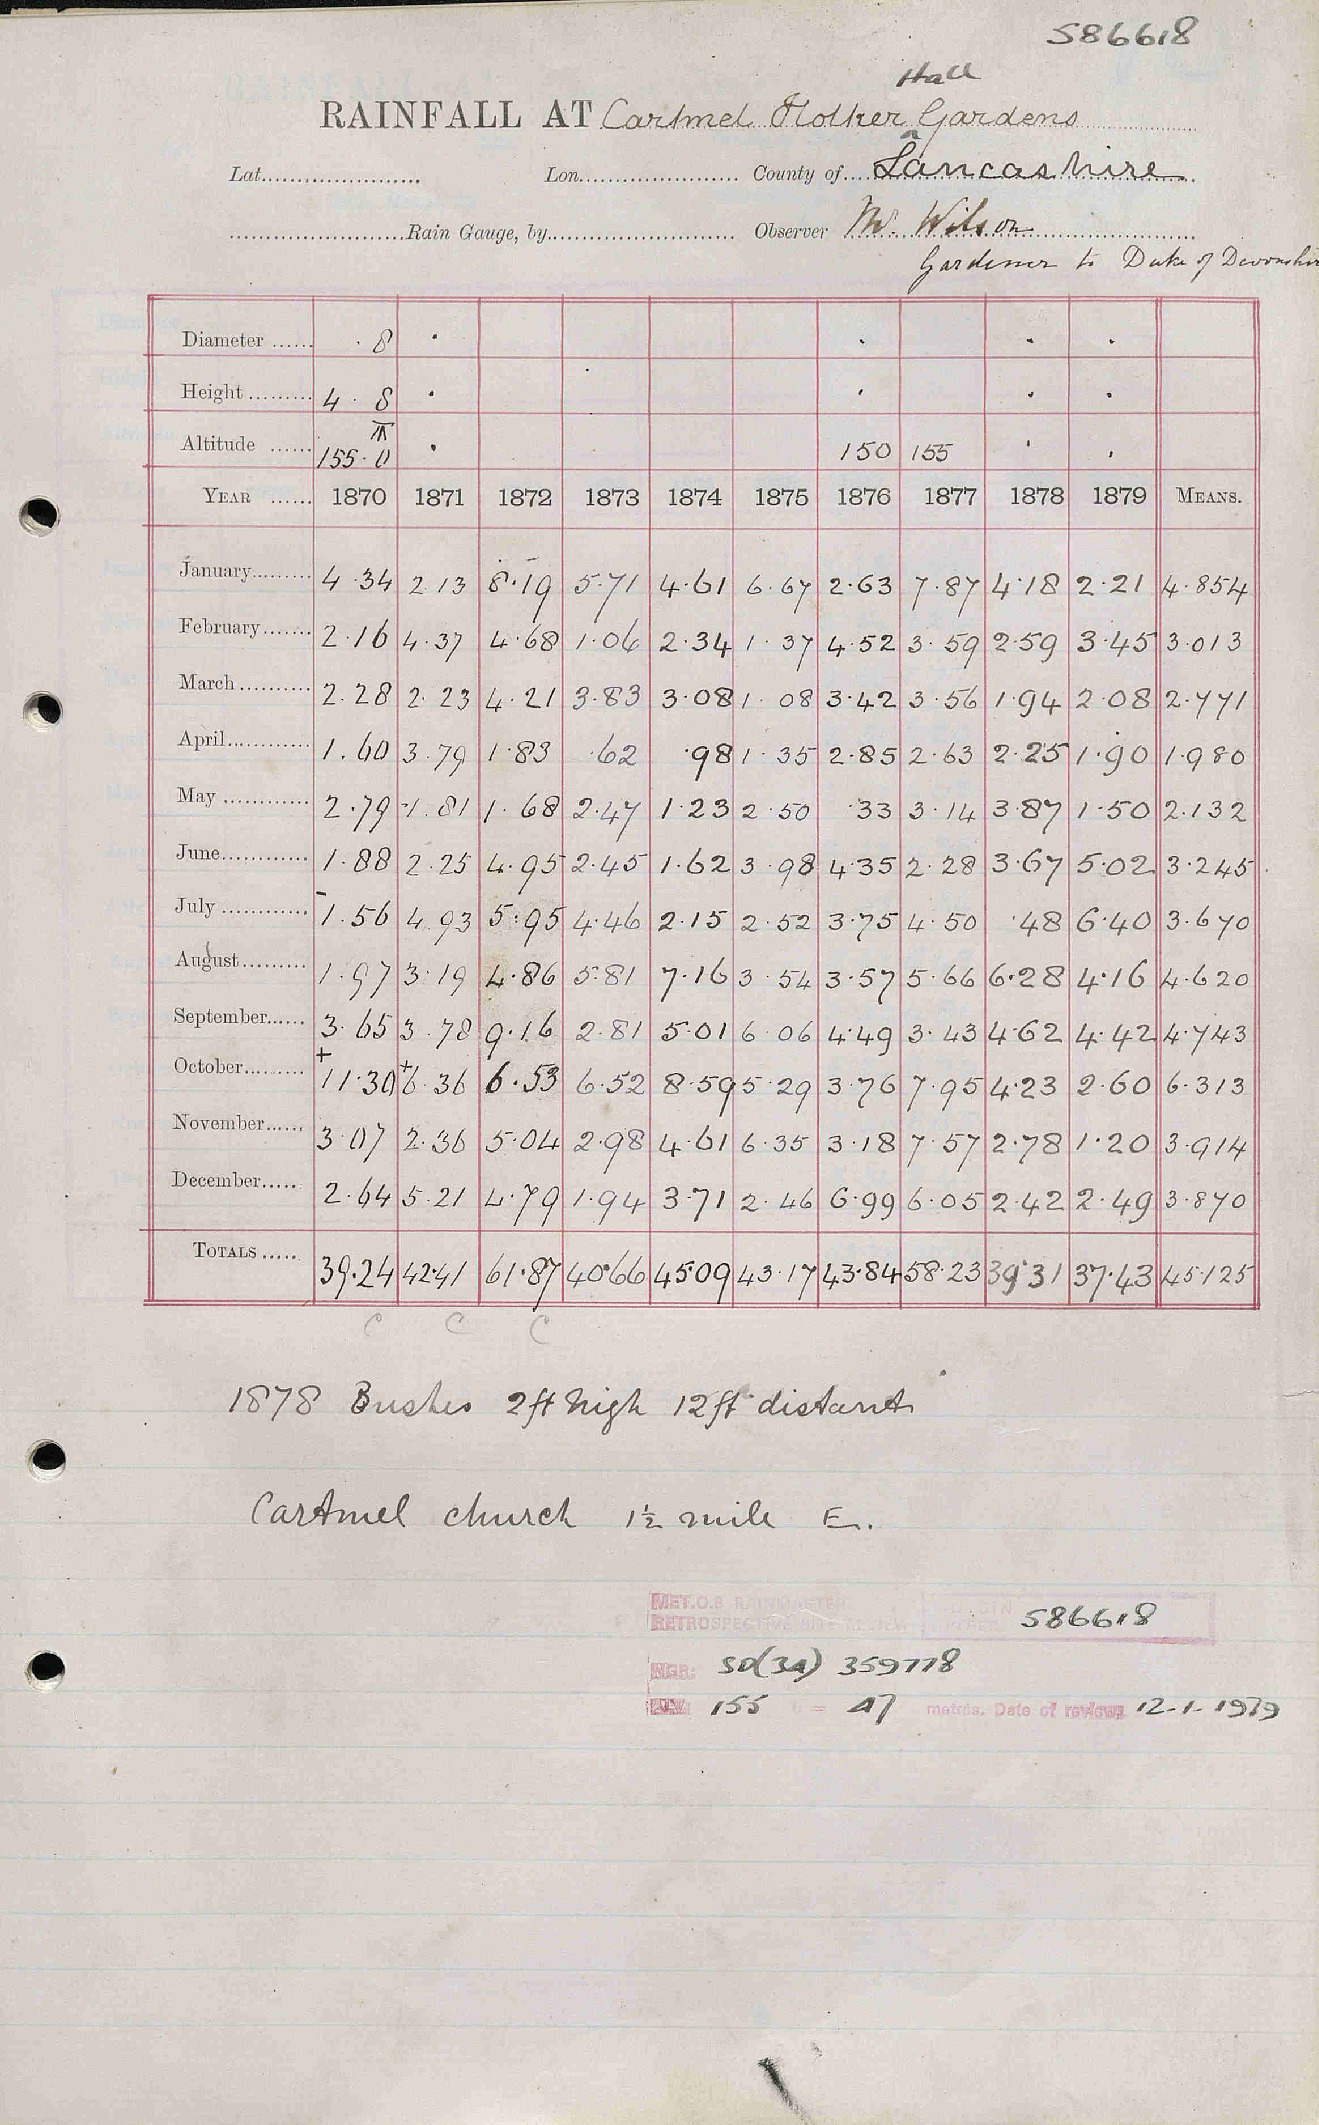 586618
Hall
RAINFALL AT Cartmel Holker Gardens
Lat. Lon. County of Lancashire
Rain Gauge, by Observer Mr. Wilson
Gardener to Duke of Devonshire
Diameter 8 · · · ·
Height 4 · 8 · · · ·
Altitude 155·0 · 150 155 · ·
YEAR 1870 1871 1872 1873 1874 1875 1876 1877 1878 1879 MEANS.
January 4·34 2·13 8·19 5·71 4·61 6·67 2·63 7·87 4·18 2·21 4·854
February 2·16 4·37 4·68 1·06 2·34 1·37 4·52 3·59 2·59 3·45 3·013
March 2·28 2·23 4·21 3·83 3·08 1·08 3·42 3·56 1·94 2·08 2·771
April 1·60 3·79 1·83 ·62 ·98 1·35 2·85 2·63 2·25 1·90 1·980
May 2·79 1·81 1·68 2·47 1·23 2·50 ·33 3·14 3·87 1·50 2·132
June 1·88 2·25 4·95 2·45 1·62 3·98 4·35 2·28 3·67 5·02 3·245
July 1·56 4·93 5·95 4·46 2·15 2·52 3·75 4·50 ·48 6·40 3·670
August 1·97 3·19 4·86 5·81 7·16 3·54 3·57 5·66 6·28 4·16 4·620
September 3·65 3·78 9·16 2·81 5·01 6·06 4·49 3·43 4·62 4·42 4·743
October +11·30 +6·36 6·53 6·52 8·59 5·29 3·76 7·95 4·23 2·60 6·313
November 3·07 2·36 5·04 2·98 4·61 6·35 3·18 7·57 2·78 1·20 3·914
December 2·64 5·21 4·79 1·94 3·71 2·46 6·99 6·05 2·42 2·49 3·870
TOTALS 39·24 42·41 61·87 40·66 45·09 43·17 43·84 58·23 39·31 37·43 45·125
C C C
1878 Bushes 2ft high 12ft distant
Cartmel church 1½ mile E.
MET.O.8 RAINMASTER
RETROSPECTIVE SITE REVIEW 586618
NGR: SD(34) 359778
155 = 47 metres. Date of review 12-1-1979